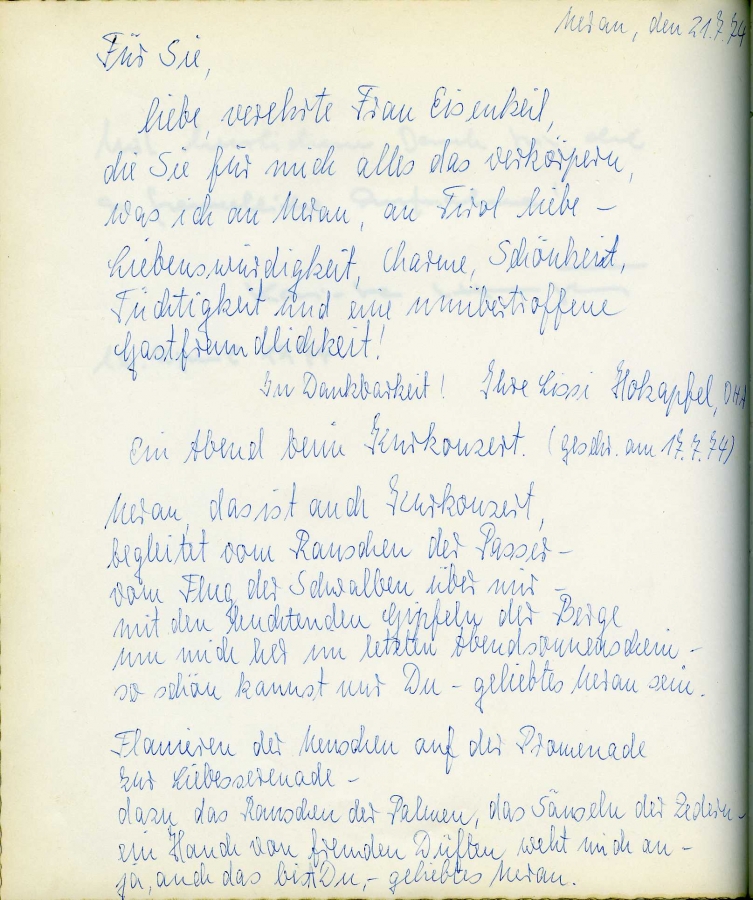 Meran, den 21.7.74
Für Sie,
liebe, verehrte Frau Eisenkeil,
die Sie für mich alles das verkörpern,
was ich an Meran, an Tirol liebe –
Liebenswürdigkeit, Charme, Schönheit,
Tüchtigkeit und eine unübertroffene
Gastfreundlichkeit!
In Dankbarkeit! Ihre Lissi Holzapfel,
Ein Abend beim Kurkonzert. (geschr. am 17.7.74)
Meran, das ist auch Kurkonzert,
begleitet vom Rauschen der Passer –
vom Flug der Schwalben über mir –
mit den leuchtenden Gipfeln der Berge
um mich her im letzten Abendsonnenschein –
so schön kannst nur Du – geliebtes Meran sein.
Flanieren der Menschen auf der Promenade
zur Liebesserenade –
dazu das Rauschen der Palmen, das Säuseln der Zedern –
ein Hauch von fremden Düften weht mich an –
ja, auch das bist Du, – geliebtes Meran.